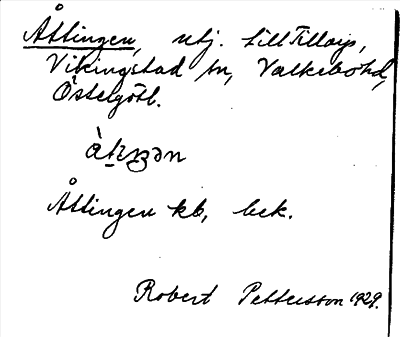 Åttingen, utj. Lill Tillorp,
Vikingstad sn, Valkebohd,
Östergötl.
Åttingen kb, bek.
Robert Pettersson 1929.